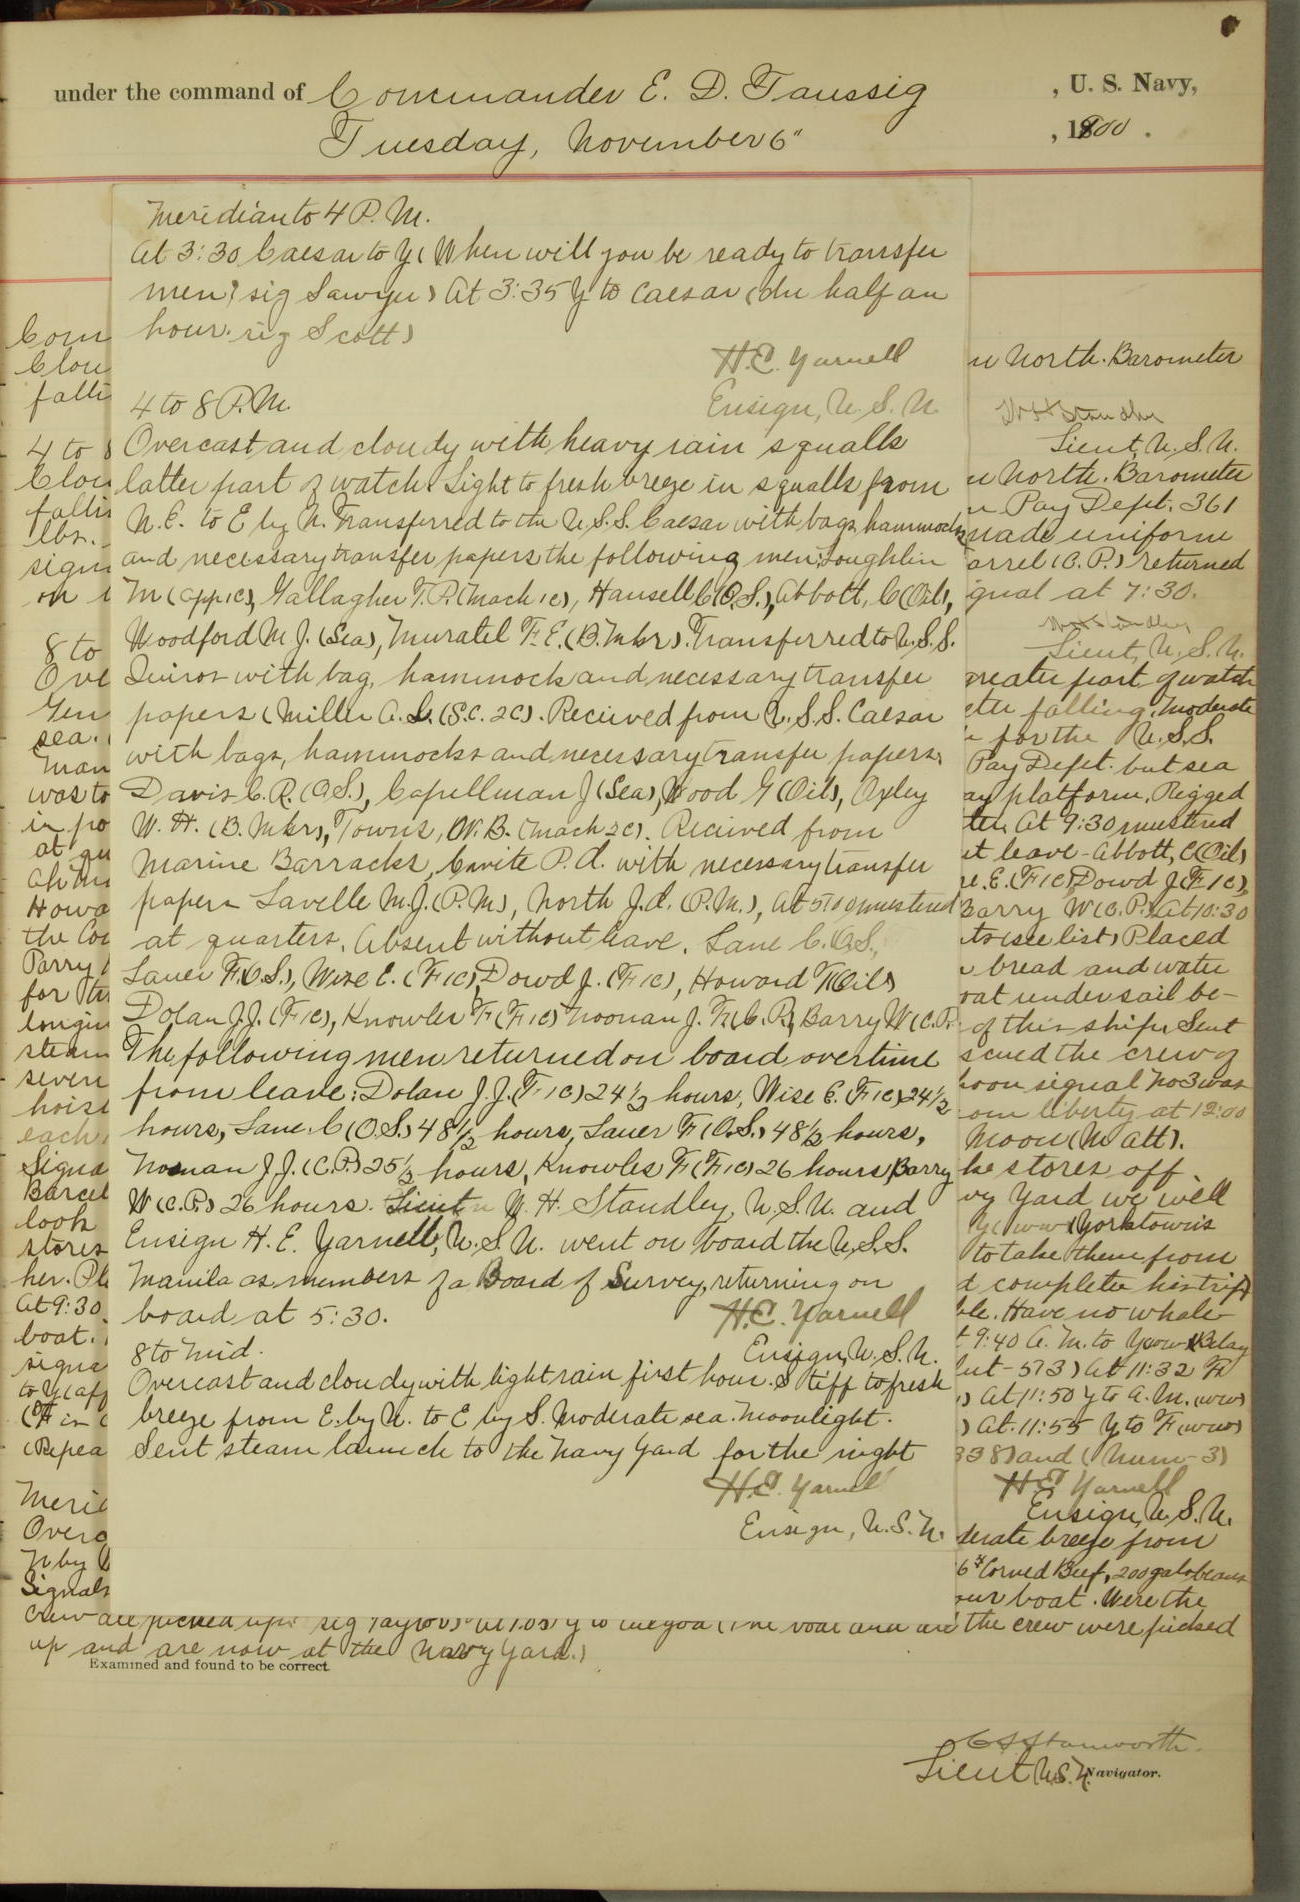 under the command of Commander E. D. Taussig , U. S. Navy,
Tuesday, November 6" , 1900 .
Meridian to 4 P. M.
At 3:30 Caesar to Y (When will you be ready to transfer
men? sig Sawyer) At 3:35 Y to Caesar (In half an
hour. sig Scott)
H. E. Yarnell
Ensign, U. S. N.
4 to 8 P. M.
Overcast and cloudy with heavy rain squalls
latter part of watch. Light to fresh breeze in squalls from
N. E. to E by N. Transferred to the U. S. S. Caesar with bags, hammocks
and necessary transfer papers the following men: Loughlin
M (App 1C), Gallagher T. P. (Mach 1C), Hansell C (O.S.), Abbott, C (Oil),
Woodford M. J. (Sea), Muratel F. E. (B. Mkr). Transferred to U. S. S.
Quiros with bag, hammock and necessary transfer
papers (Miller A. G. (S.C. 2C). Received from U. S. S. Caesar
with bags, hammocks and necessary transfer papers,
Davis C. R. (O.S.), Capellman J (Sea), Wood G (Oil), Oxley
W. H. (B. Mkr), Towns, W. B. (Mach 2C). Recieved from
Marine Barracks, Cavite P. I. with necessary transfer
papers Lavelle M. J. (P. M), North J. A. (P. M.), At 5:10 mustered
at quarters. Absent without leave. Lane C. O.S.,
Lauer F. (O.S.), Wise E. (F 1C), Dowd J. (F 1C), Howard F (Oil)
Dolan J. J. (F 1C), Knowles F (F 1C) Noonan J. F. (C. P.), Barry W (C. P.
The following men returned on board overtime
from leave: Dolan J. J. (F 1C) 24 1/2 hours, Wise E. (F 1C) 24 1/2
hours, Lane C (O.S.) 48 1/2 hours, Lauer F (O.S.) 48 1/2 hours,
Noonan J. J. (C.P.) 25 1/2 hours, Knowles F (F 1C) 26 hours Barry
W (C.P.) 26 hours. Lieut W. H. Standley, U. S. N. and
Ensign H. E. Yarnell, U. S. N. went on board the U. S. S.
Manila as members of a Board of Survey, returning on
board at 5:30.
H. E. Yarnell
Ensign, U. S. N.
8 to Mid.
Overcast and cloudy with light rain first hour. Stiff to fresh
breeze from E. by N. to E by S. Moderate sea. Moonlight.
Sent steam launch to the Navy Yard for the night
H. E. Yarnell
Ensign, U. S. N.
North. Barometer
Lieut, U. S. N.
North. Barometer
Pay Dept. 361
made uniform
(C. P.) returned
at 7:30.
Lieut, U. S. N.
greater part of watch
falling. Moderate
for the U. S. S.
Pay Dept. but sea
platform. Rigged
At 9:30 mustered
leave - Abbott, C (Oil)
E. (F 1C) Dowd J (F 1C)
Barry W (C. P.) At 10:30
(see list) Placed
bread and water
under sail be-
of this ship. Sent
the crew of
signal No 3 was
liberty at 12:00
Moon (M Att).
stores off
Yard we will
Yorktown's
to take them from
complete his trip
Have no whale
9:40 A. M. to
573) At 11:32
At 11:50 Y to A. M.
At 11:55 Y to F
338) and (Num - 3)
H. E. Yarnell
Ensign, U. S. N.
breeze from
Corned Beef, 200 galo beans
boat. Were the
crew all picked up? sig Taylor) At 1:05 Y to (The boat and the crew were picked
up and are now at the Navy Yard.)
Examined and found to be correct.
C S Stanworth
Lieut U. S. N. Navigator.